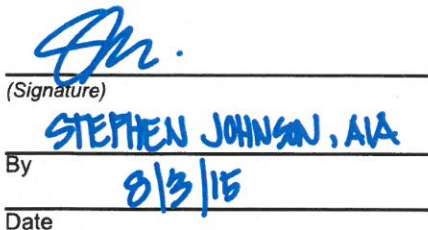 (Signature)
STEPHEN JOHNSON, AIA
By
8/3/15
Date